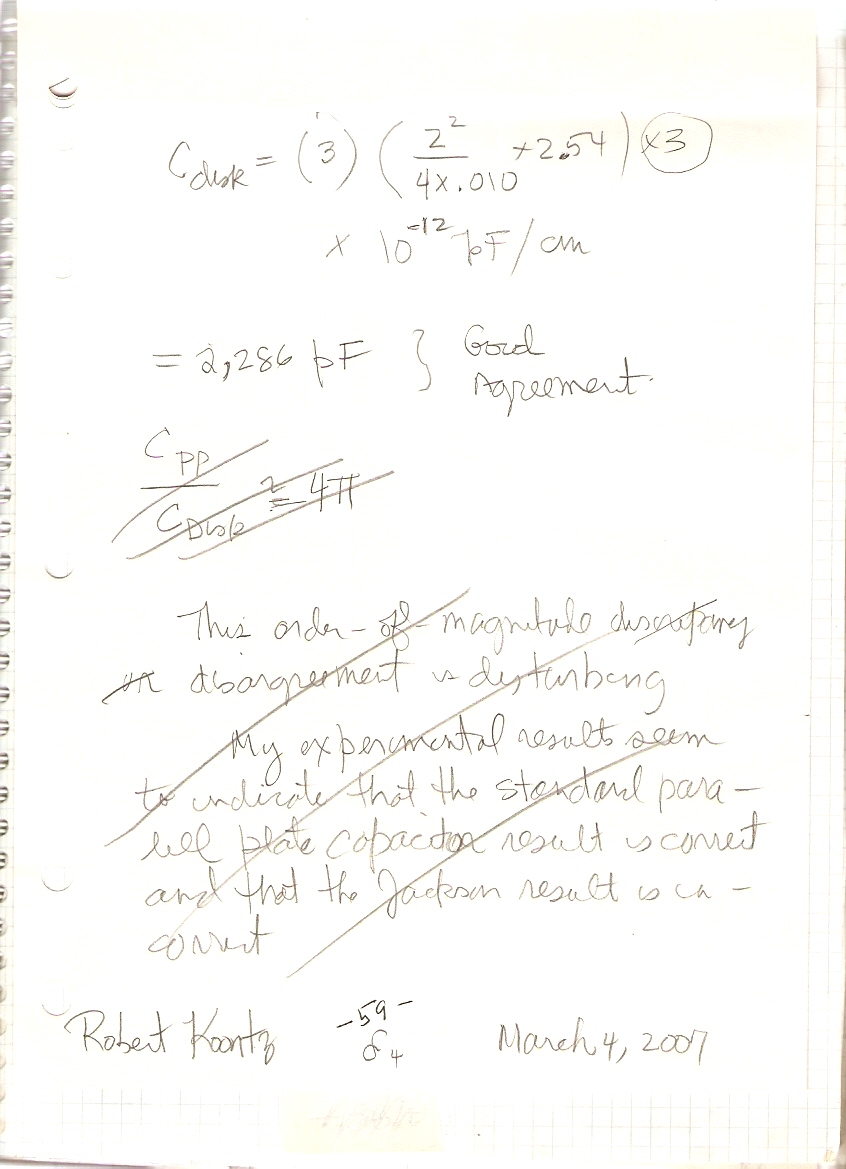 C_disk = (3) (2²/4x.010 +2.54) x3
x 10⁻¹² pF/cm
= 2,286 pF } Good
Agreement.
C_PP/C_Disk ≅ 4π
This order-of-magnitude discrepancy
or disagreement is disturbing
My experimental results seem
to indicate that the standard para-
llel plate capacitor result is correct
and that the Jackson result is in-
correct
Robert Koontz -59- March 4, 2007